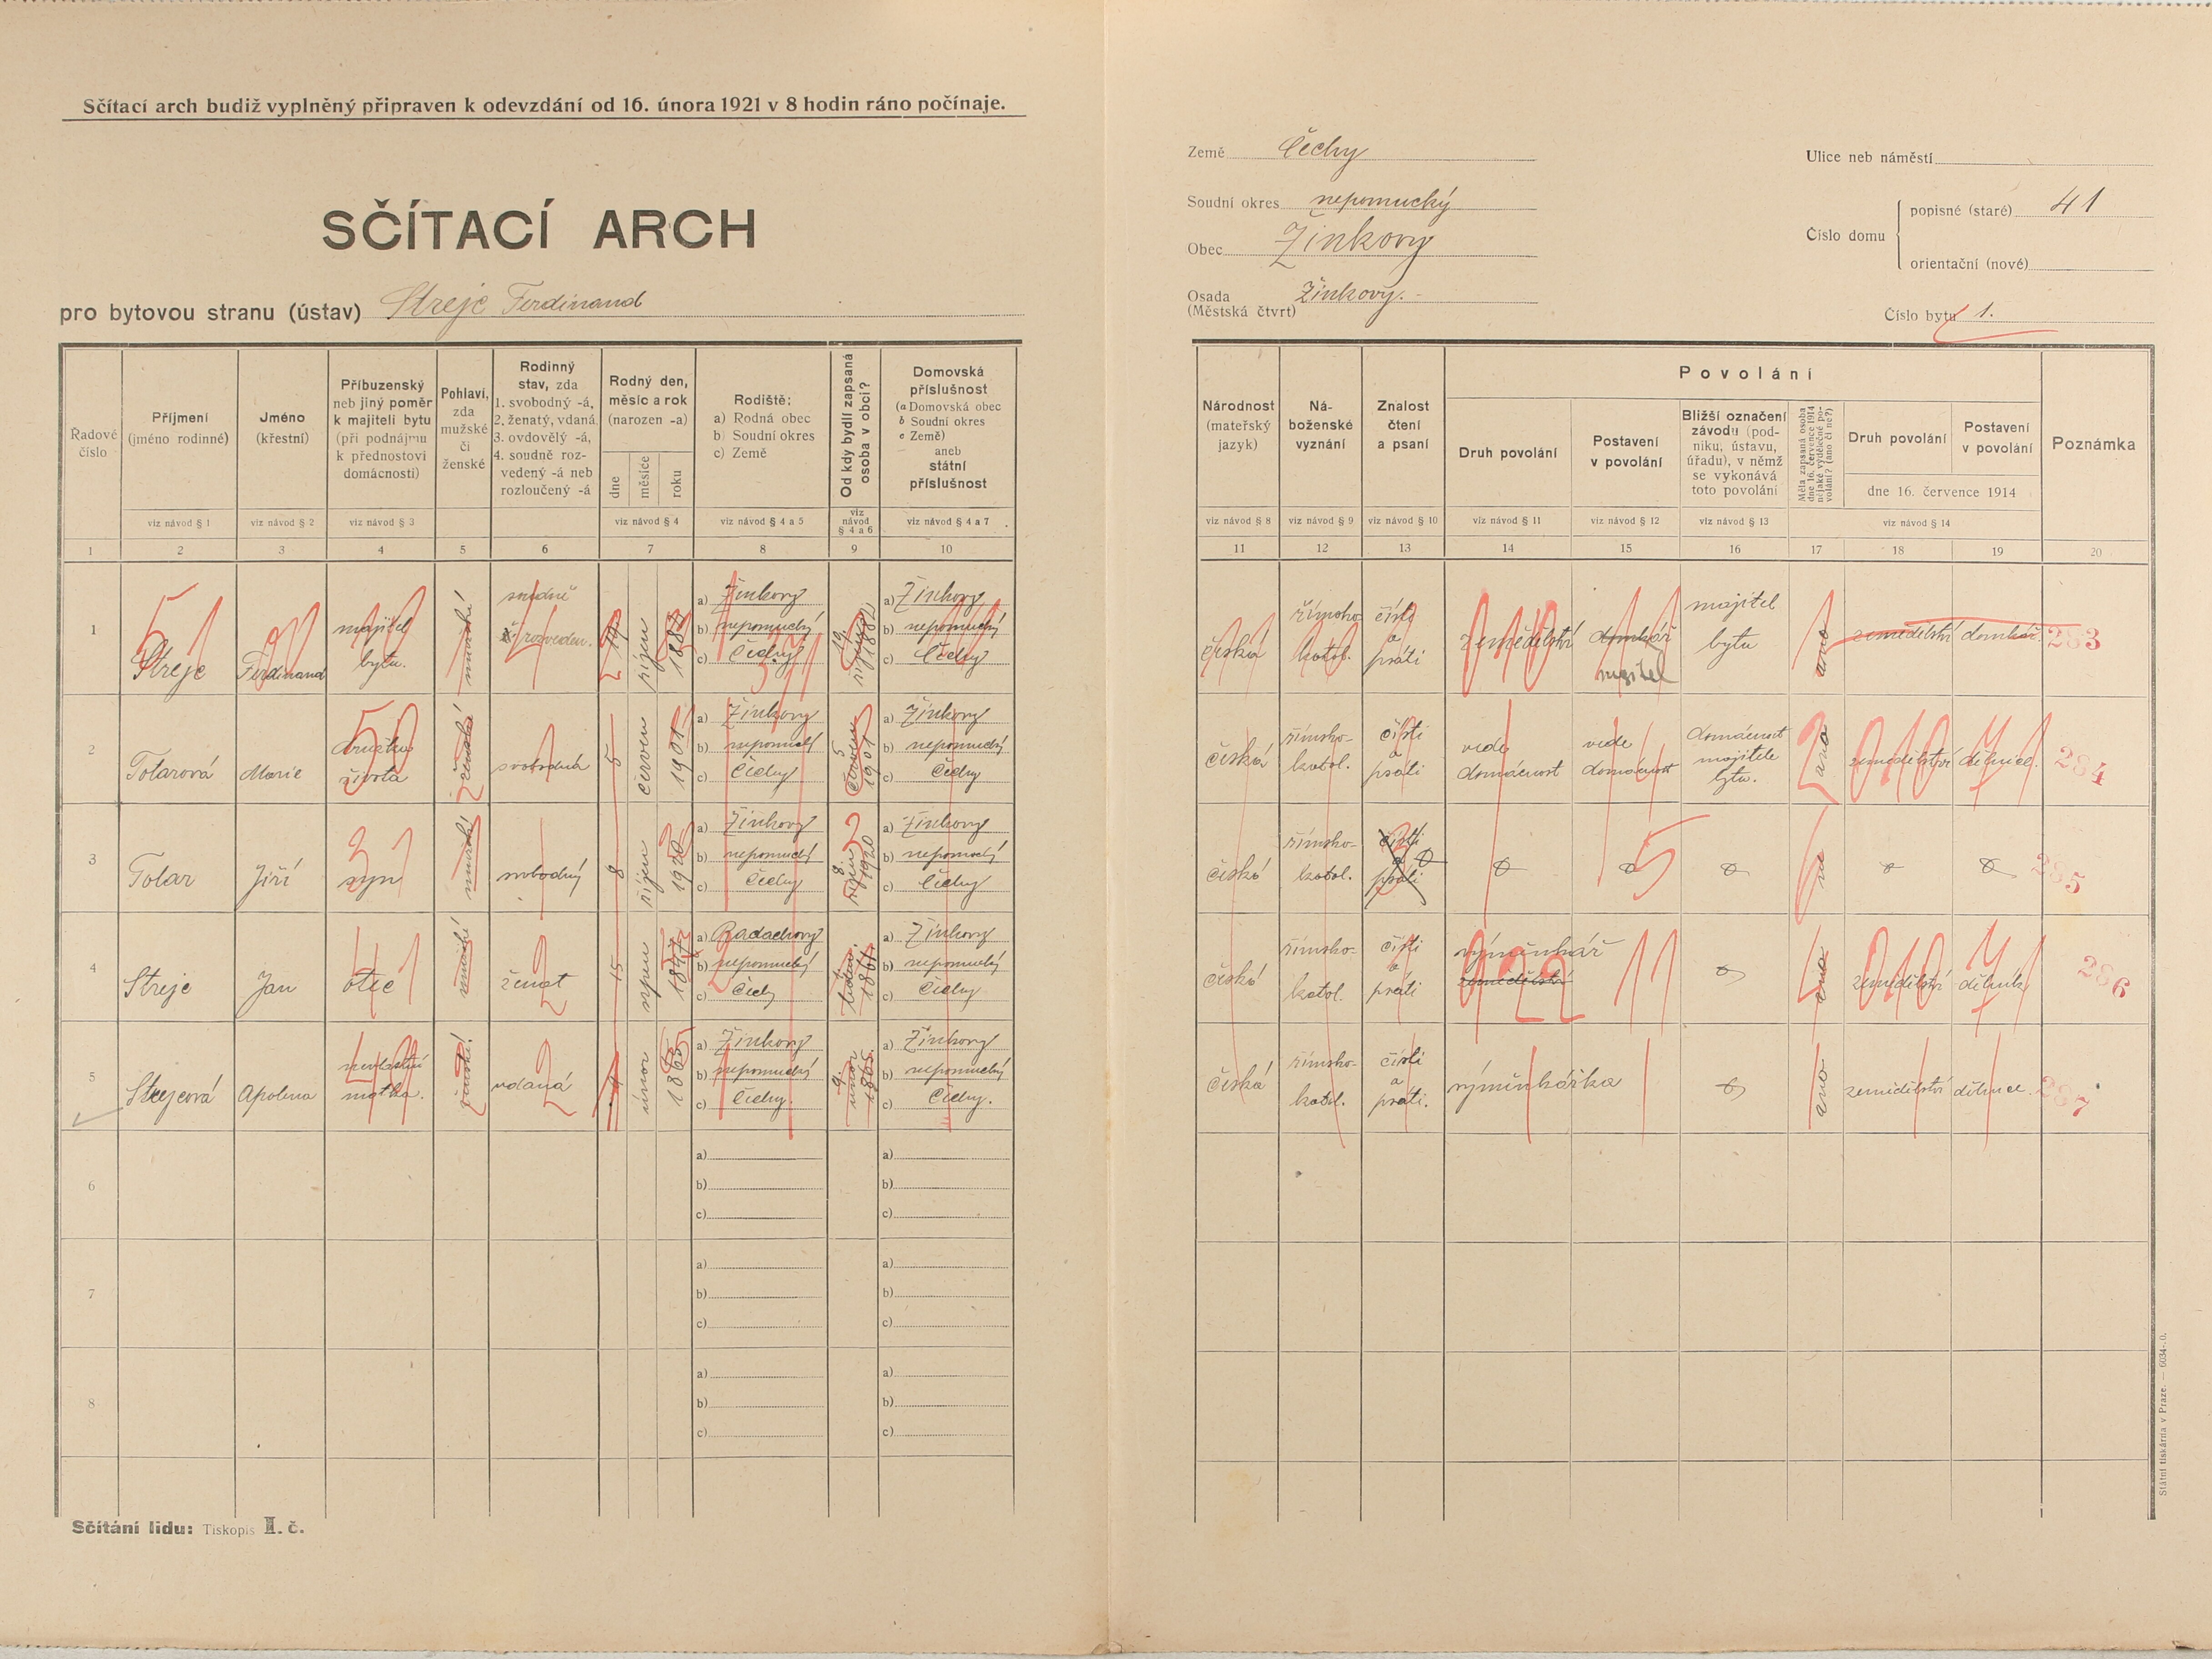 Sčítací arch budiž vyplněný připraven k odevzdání od 16. února 1921 v 8 hodin ráno počínaje.
SČÍTACÍ ARCH
pro bytovou stranu (ústav) Streje Ferdinand
Země Čechy
Soudní okres nepomucký
Obec Žinkovy
Osada Žinkovy.
(Městská čtvrť)
Ulice neb náměstí
Číslo domu
popisné (staré) 41
orientační (nové)
Číslo bytu 1.
Řadové číslo
Příjmení (jméno rodinné)
Jméno (křestní)
Příbuzenský neb jiný poměr k majiteli bytu (při podnájmu k přednostovi domácnosti)
Pohlaví, zda mužské či ženské
Rodinný stav, zda 1. svobodný -á, 2. ženatý, vdaná 3. ovdovělý -á, 4. soudně rozvedený -á neb rozloučený -á
Rodný den, měsíc a rok (narozen -a)
dne měsíce roku
Rodiště: a) Rodná obec b) Soudní okres c) Země
Od kdy bydlí zapsaná osoba v obci?
Domovská příslušnost (a Domovská obec b Soudní okres c Země) aneb státní příslušnost
Národnost (mateřský jazyk)
Náboženské vyznání
Znalost čtení a psaní
Povolání
Druh povolání
Postavení v povolání
Bližší označení závodu (podniku, ústavu, úřadu), v němž se vykonává toto povolání
Měla zapsaná osoba dne 16. července 1914 nějaké výdělečné povolání? (ano či ne?)
Druh povolání
Postavení v povolání
dne 16. července 1914
Poznámka
viz návod § 1 viz návod § 2 viz návod § 3 viz návod § 4 viz návod § 4 a 5 viz návod § 4 a 6 viz návod § 4 a 7
viz návod § 8 viz návod § 9 viz návod § 10 viz návod § 11 viz návod § 12 viz návod § 13 viz návod § 14
1 2 3 4 5 6 7 8 9 10
11 12 13 14 15 16 17 18 19 20
1 Streje Ferdinand majitel bytu. mužské soudně rozveden. říjen 188
a) Žinkovy b) nepomucký c) Čechy
a) Žinkovy b) nepomucký c) Čechy
česká římsko katol. čísti a práti zemědělství domkář majitel majitel bytu ano zemědělství domkář. 283
2 Tolarová Marie družka života ženské svobodná 5 červen 1901
a) Žinkovy b) nepomucký c) Čechy
5 červen 1901
a) Žinkovy b) nepomucký c) Čechy
česká římsko-katol. čísti a práti vede domácnost vede domácnost domácnost majitele bytu. ano zemědělství dělnice. 284
3 Tolar Jiří syn mužské svobodný 8 říjen 1920
a) Žinkovy b) nepomucký c) Čechy
8 říjen 1920
a) Žinkovy b) nepomucký c) Čechy
česká římsko-katol. čísti a práti ne 285
4 Streje Jan otec mužské ženat 15 srpen
a) Radochovy b) nepomucký c) Čechy
a) Žinkovy b) nepomucký c) Čechy
česká římsko-katol. čísti a práti výměnkář zemědělství 022 11 ano zemědělství dělník 286
5 Strejcová Apolena nevlastní matka. ženské vdaná 9 únor 1865
a) Žinkovy b) nepomucký c) Čechy.
9. únor 1865.
a) Žinkovy b) nepomucký c) Čechy.
česká římsko-katol. čísti a práti. výměnkářka ano zemědělství dělnice. 287
6 a) b) c) a) b) c)
7 a) b) c) a) b) c)
8 a) b) c) a) b) c)
Sčítání lidu: Tiskopis II. č.
Státní tiskárna v Praze. — 6034-.0.